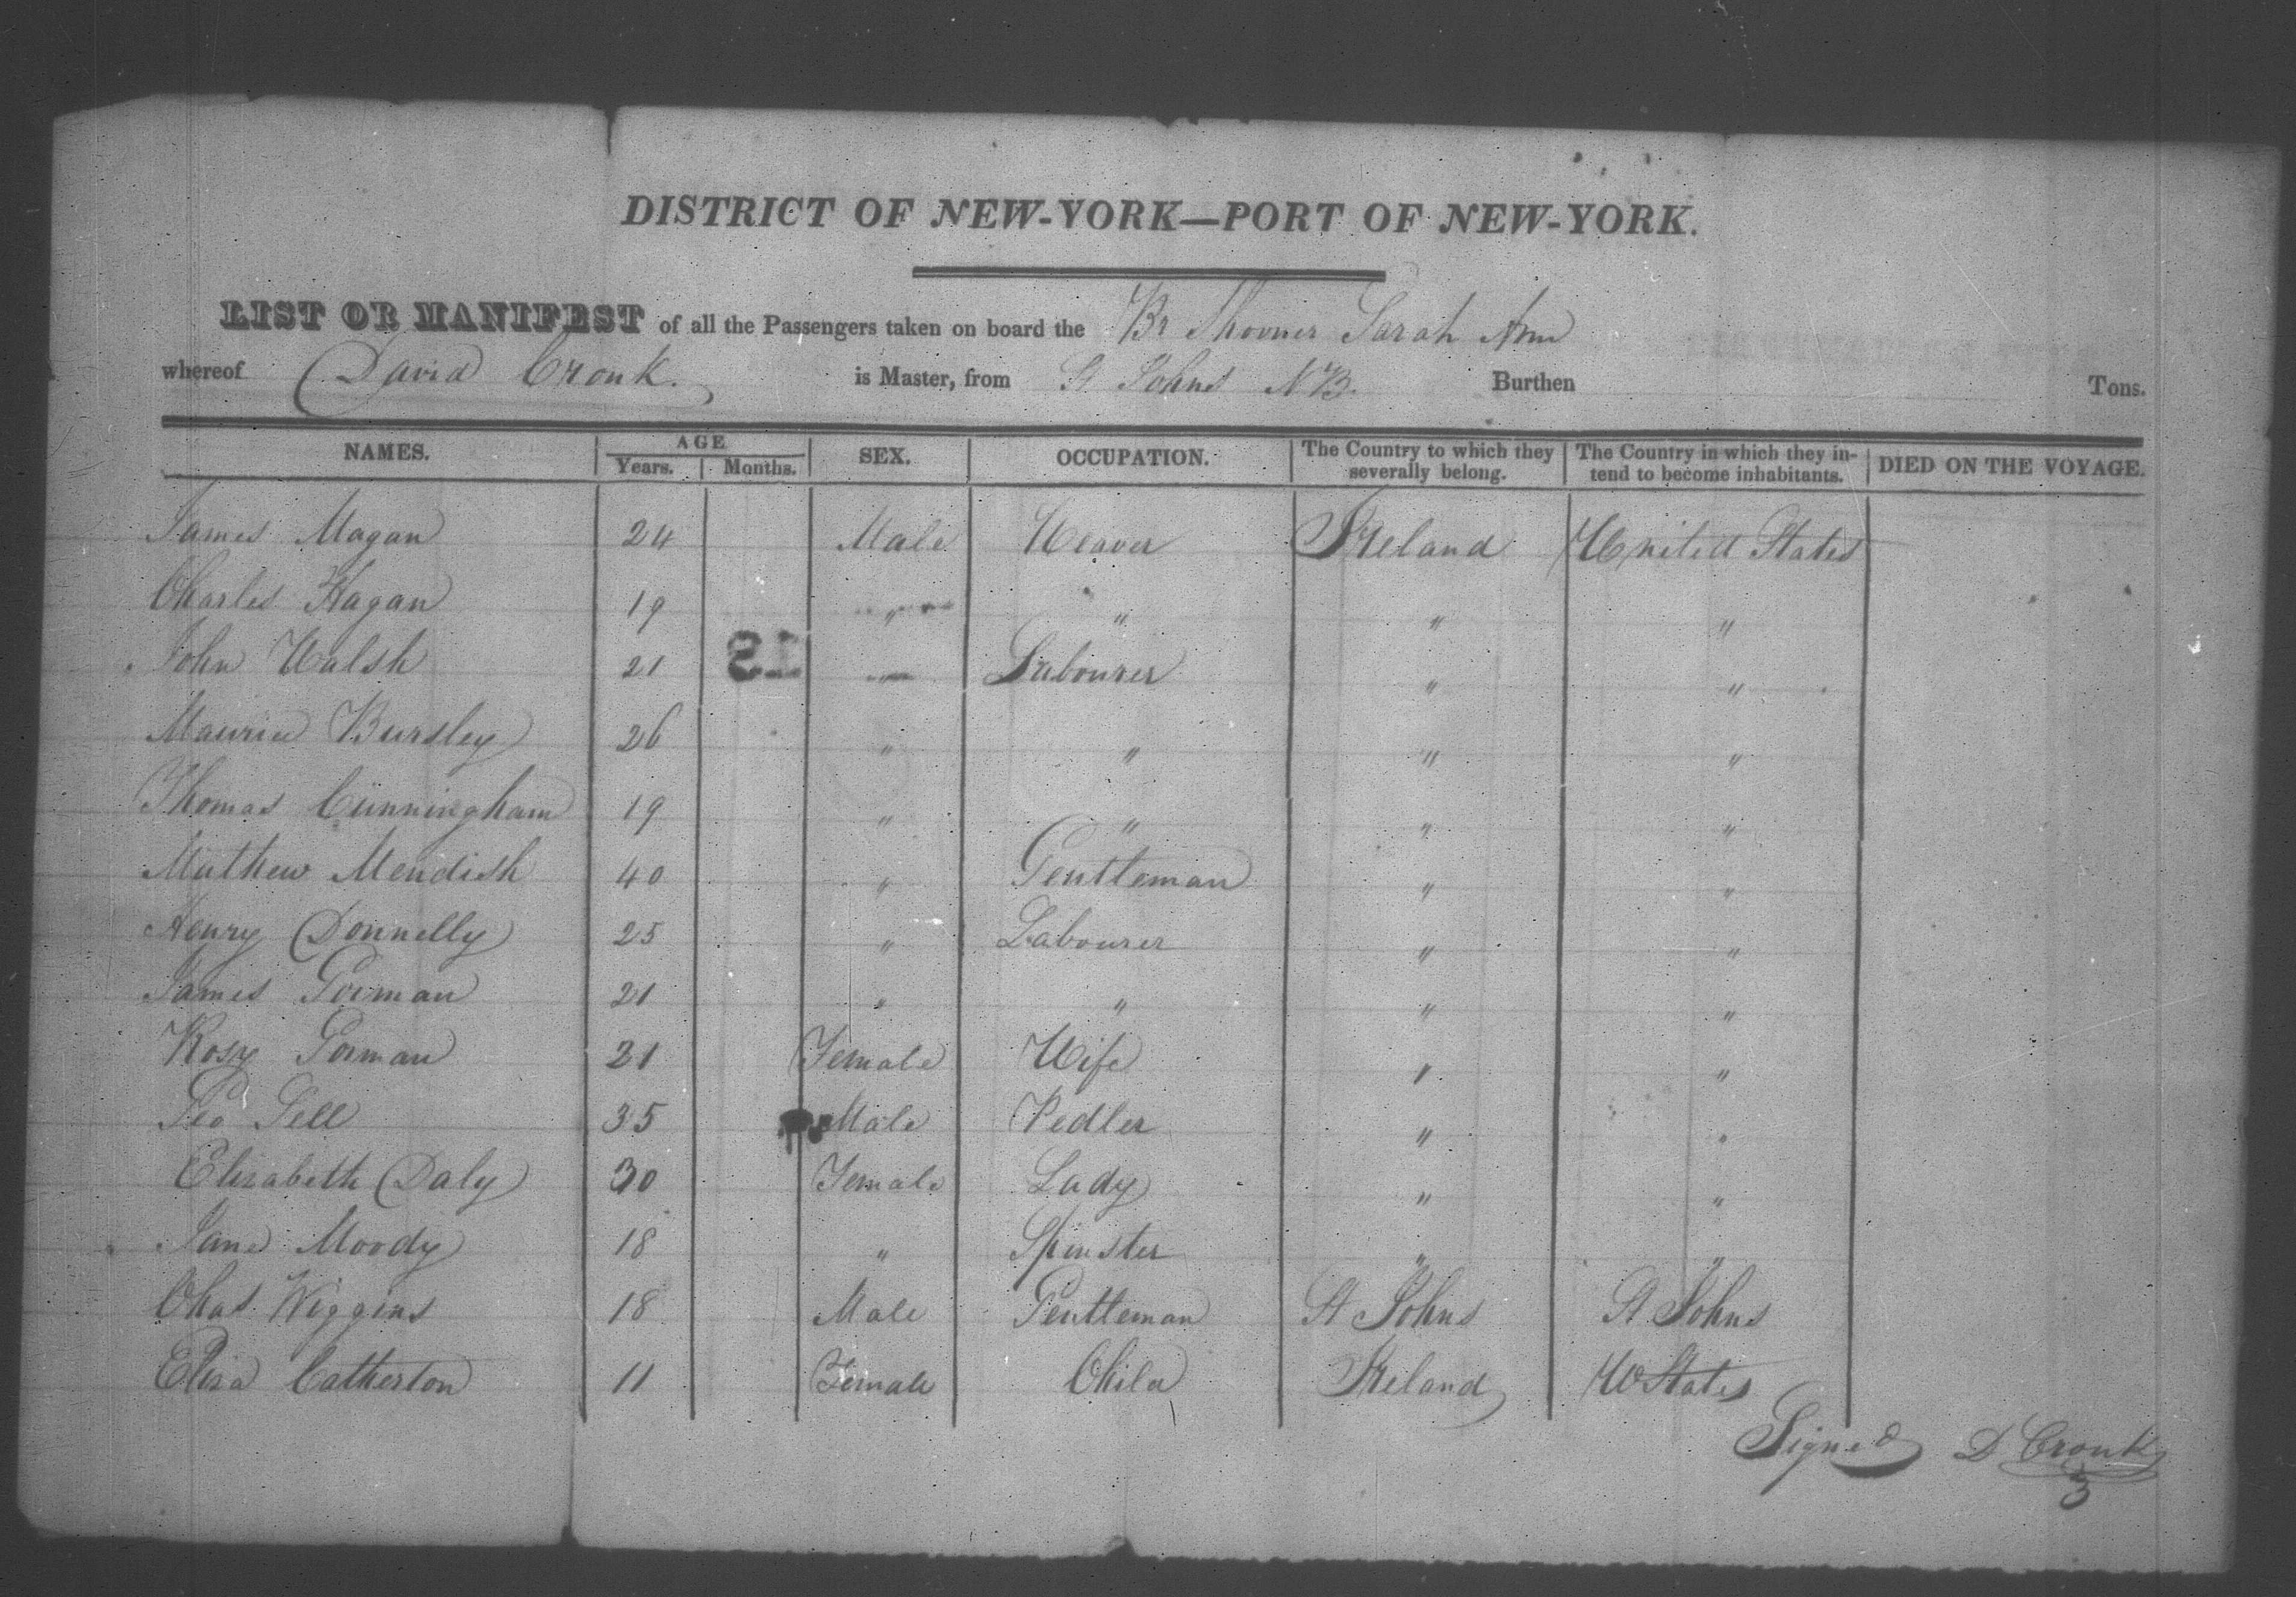 DISTRICT OF NEW-YORK—PORT OF NEW-YORK.
LIST OR MANIFEST of all the Passengers taken on board the Br Shooner Sarah Ann
whereof David Cronk. is Master, from St Johns NB. Burthen Tons.
NAMES. AGE Years. Months. SEX. OCCUPATION. The Country to which they severally belong. The Country in which they in-tend to become inhabitants. DIED ON THE VOYAGE.
James Magan 24 Male Weaver Ireland United States
Charles Hagan 19 " " " "
John Walsh 21 " Labourer " "
Maurice Bursley 26 " " " "
Thomas Cunningham 19 " " " "
Mathew Mendish 40 " Gentleman " "
Henry Donnelly 25 " Labourer " "
James Gorman 21 " " " "
Rosy Gorman 21 Female Wife " "
Geo Sell 35 Male Pedler " "
Elizabeth Daly 30 Female Lady " "
Jane Moody 18 " Spinster " "
Chas. Wiggins 18 Male Gentleman St Johns St Johns
Eliza Catherton 11 Female Child Ireland U States
Signed D Cronk